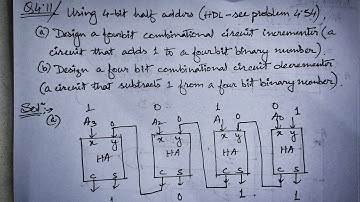 Q.4.11/ Using 4-bit half adders (HDL-see problem 4.54),
(a) Design a fourbit combinational circuit incrementer (a
circuit that adds 1 to a fourbit binary number).
(b) Design a four bit combinational circuit decrementer
(a circuit that subtracts 1 from a four bit binary number).
Sol:-
1 0 1 0
(a) A3 0 A2 0 A1 0 A0 1
x y x y x y x y
HA HA HA HA
C S C S C S C S
1 0 1 1